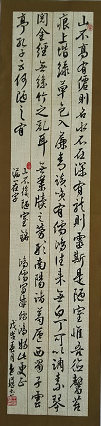 山不高有僊則名水不在深有龍則靈斯是陋室惟吾德馨苔
痕上階綠草色入簾青談笑有儒鴻往來無白丁可以調素琴
閱金經無絲竹之亂耳無案牘之勞形南陽諸葛廬西蜀子雲
亭孔子云何陋之有
陋室銘
漏在字
特此更正